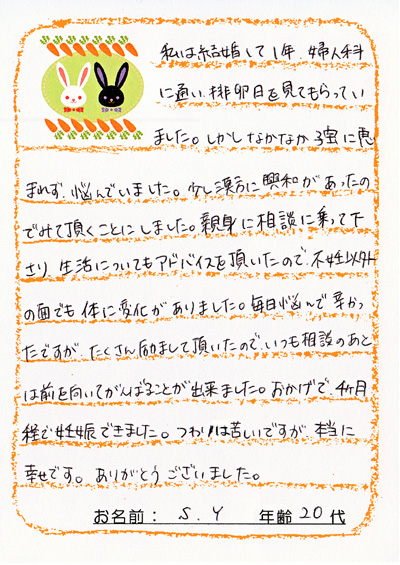 私は結婚して1年、婦人科
に通い、排卵日を見てもらってい
ました。しかしなかなか子宝に恵
まれず、悩んでいました。少し漢方に興和があったの
でみて頂くことにしました。親身に相談に乗って下
さり、生活についてもアドバイスを頂いたので、不妊以外
の面でも体に変化がありました。毎日悩んで辛かっ
たですが、たくさん励まして頂いたので、いつも相談のあと
は前を向いてがんばることが出来ました。おかげで、4ヶ月
程で妊娠できました。つわりは苦しいですが、本当に
幸せです。ありがとうございました。
お名前： S.Y 年齢 20 代